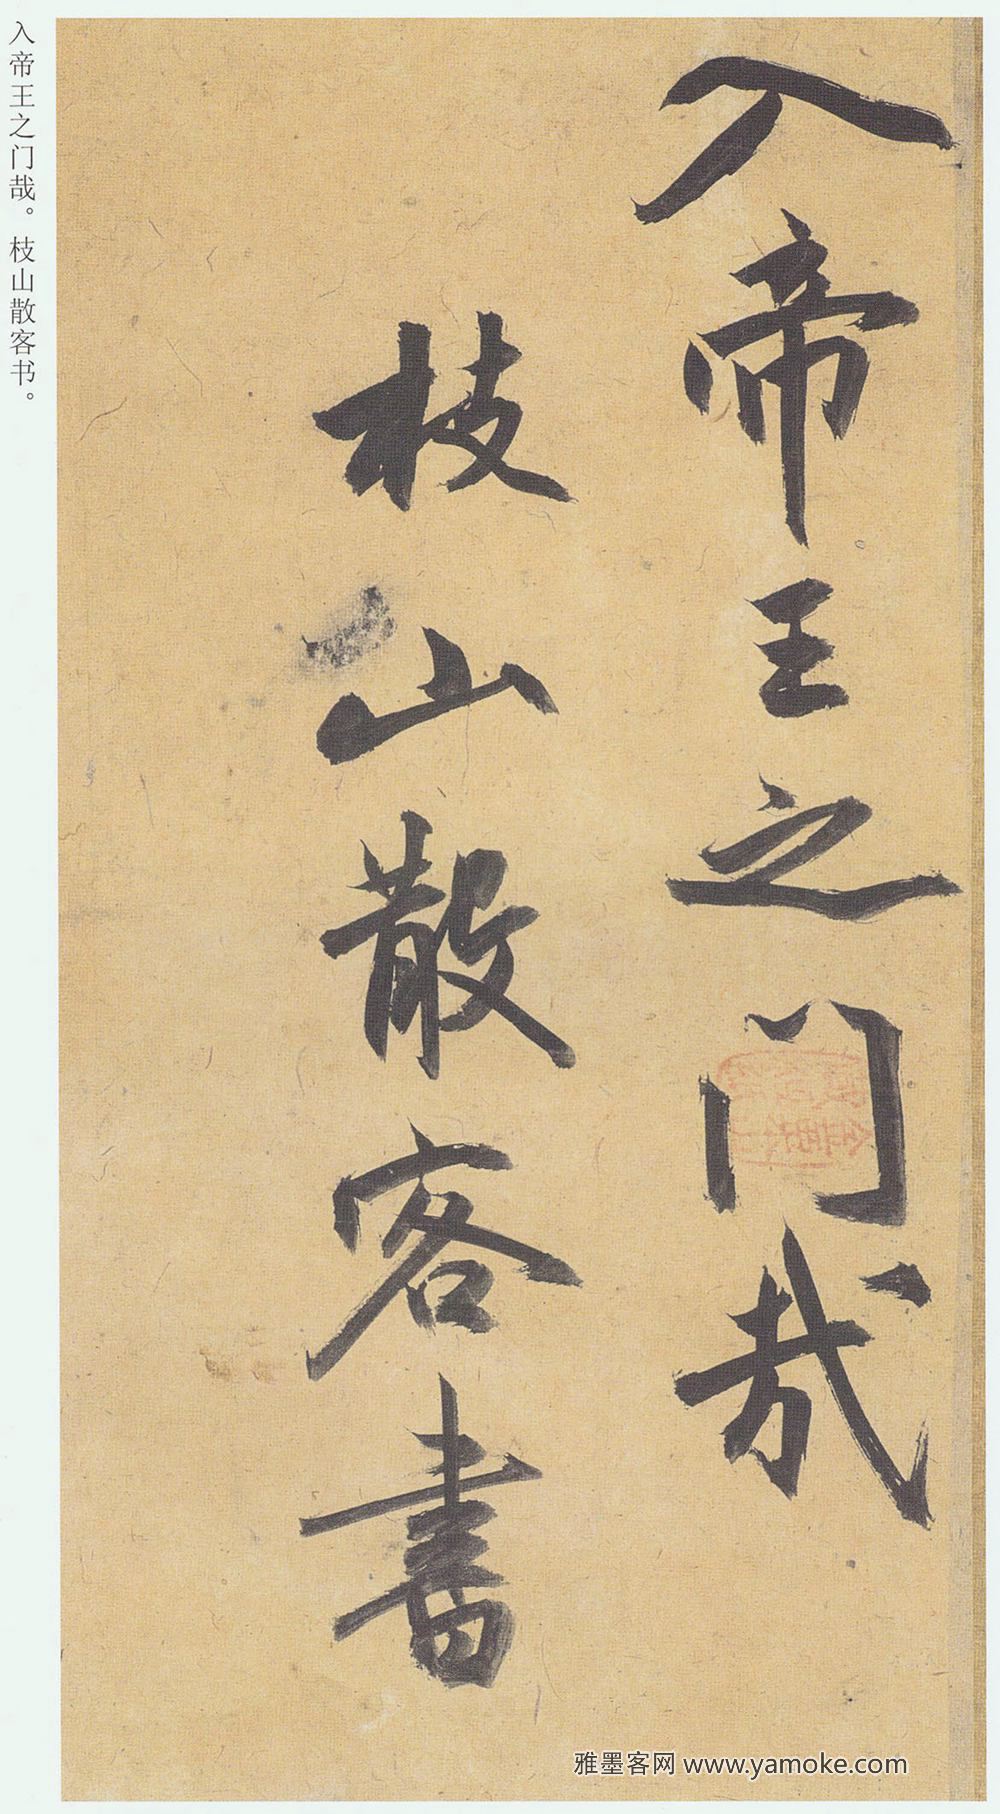 入帝王之门哉
枝山散客書
入帝王之门哉。枝山散客书。
雅墨客网 www.yamoke.com